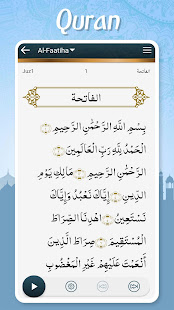 Quran
Al-Faatiha
Juz1 1 الفاتحة
الفاتحة
بِسْمِ اللَّهِ الرَّحْمَٰنِ الرَّحِيمِ
الْحَمْدُ لِلَّهِ رَبِّ الْعَالَمِينَ
الرَّحْمَٰنِ الرَّحِيمِ مَالِكِ يَوْمِ
الدِّينِ إِيَّاكَ نَعْبُدُ وَإِيَّاكَ
نَسْتَعِينُ اهْدِنَا الصِّرَاطَ
الْمُسْتَقِيمَ صِرَاطَ الَّذِينَ
أَنْعَمْتَ عَلَيْهِمْ غَيْرِ الْمَغْضُوبِ